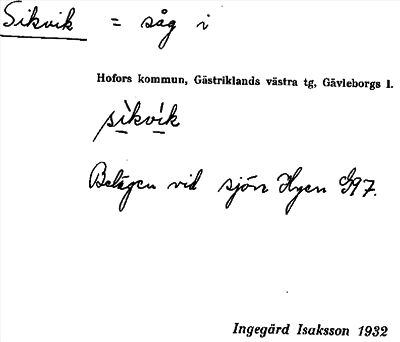 Sikvik = såg i
Hofors kommun, Gästriklands västra tg, Gävleborgs l.
sìkvík
Belägen vid sjön Hyen 997.
Ingegärd Isaksson 1932